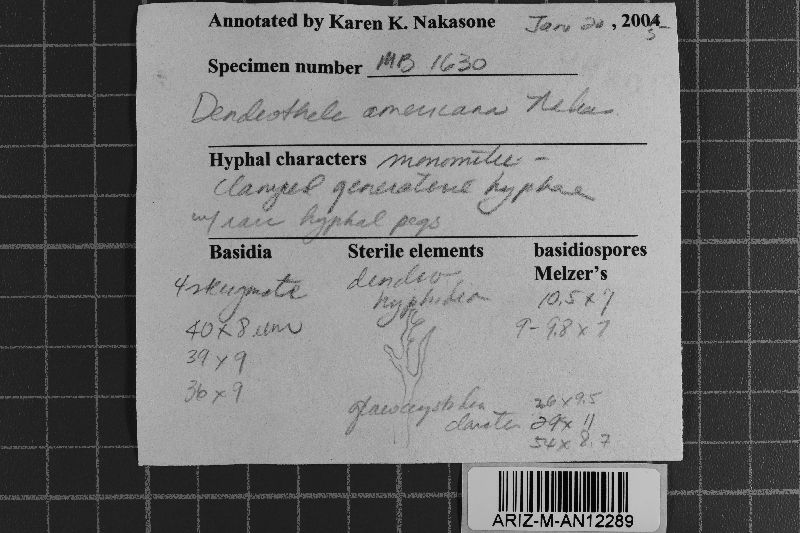 Annotated by Karen K. Nakasone Jan. 20, 2005
Specimen number MB 1630
Dendrothele americana Nakas.
Hyphal characters monomitic -
clamped generative hyphae
w/ rare hyphal pegs
Basidia Sterile elements basidiospores
Melzer's
4 sterigmate
40 x 8 um
39 x 9
36 x 9
dendro
hyphidia
gloeocystidia
clavate
10.5 x 7
9-9.8 x 7
26 x 9.5
29 x 11
54 x 8.7
ARIZ-M-AN12289